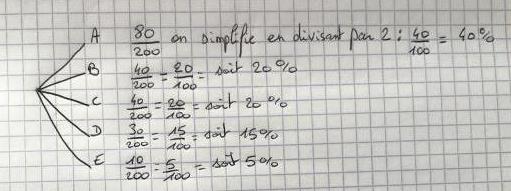 A 80/200 on simplifie en divisant par 2 : 40/100 = 40%
B 40/200 = 20/100 = soit 20%
C 40/200 = 20/100 = soit 20%
D 30/200 = 15/100 = soit 15%
E 10/200 = 5/100 = soit 5%